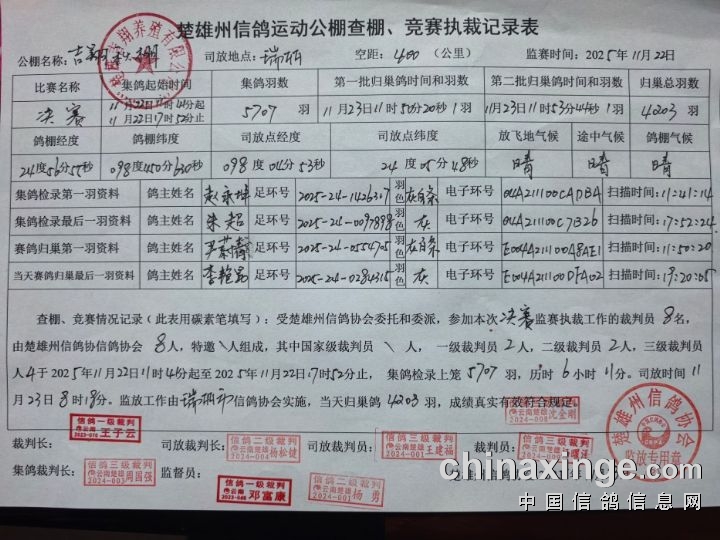 楚雄州信鸽运动公棚查棚、竞赛执裁记录表
公棚名称: 吉翔 棚 司放地点: 瑞丽 空距: 400 (公里) 监赛时间: 2025年11月22日
比赛名称 集鸽起始时间 集鸽羽数 第一批归巢鸽时间和羽数 第二批归巢鸽时间和羽数 归巢总羽数
决赛 11月22日11时41分起 11月22日17时52分止 5707 羽 11月23日11时50分20秒1羽 11月23日11时53分44秒1羽 4203 羽
鸽棚经度 鸽棚纬度 司放点经度 司放点纬度 放飞地气候 途中气候 鸽棚气候
24度56分55秒 098度 098度04分53秒 24度05分48秒 晴 晴 晴
集鸽检录第一羽资料 鸽主姓名 足环号 2025-24-1426317 羽色 灰白条 电子环号 04A21100CADBA 扫描时间:11:41:14
集鸽检录最后一羽资料 鸽主姓名 朱超 足环号 2025-24-0097898 羽色 灰 电子环号 04A21100C7B26 扫描时间:17:52:24
赛鸽归巢第一羽资料 鸽主姓名 足环号 2025-24-0554705 羽色 灰白条 电子环号 E004A21100A8AE1 扫描时间:11:50:20
当天赛鸽归巢最后一羽资料 鸽主姓名 李艳昆 足环号 2025-24-0284315 羽色 灰 电子环号 E004A21100DFA02 扫描时间:17:20:05
查棚、竞赛情况记录(此表用碳素笔填写):受楚雄州信鸽协会委托和委派,参加本次决赛监赛执裁工作的裁判员8名,
由楚雄州信鸽协信鸽协会8人,特邀\人组成,其中国家级裁判员\人,一级裁判员2人,二级裁判员2人,三级裁判员
人4于2025年11月22日11时41分起至2025年11月22日17时52分止,集鸽检录上笼5707羽,历时6小时11分。司放时间11
月23日8时18分。监放工作由瑞丽市信鸽协会实施,当天归巢鸽4203羽,成绩真实有效符合规定。
裁判长: 信鸽一级裁判 云南 2023-070 王子云 司放裁判长: 信鸽二级裁判 云南楚雄 2024-004 杨松健 司放裁判员: 信鸽三级裁判 云南楚雄 2024-001 王建福 云南楚雄 2024-008 沈金刚
集鸽裁判长: 信鸽三级裁判 云南楚雄 2024-003 周国强 监督员: 信鸽一级裁判 云南 邓富康 信鸽二级裁判 云南楚雄 2024-001 杨勇
楚雄州信鸽协会
监放专用章
chinaxinge.com
中国信鸽信息网